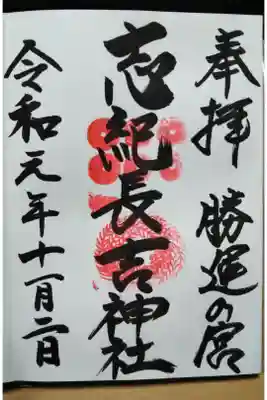 奉拝 勝運の宮
志紀長吉神社
令和元年十一月二日